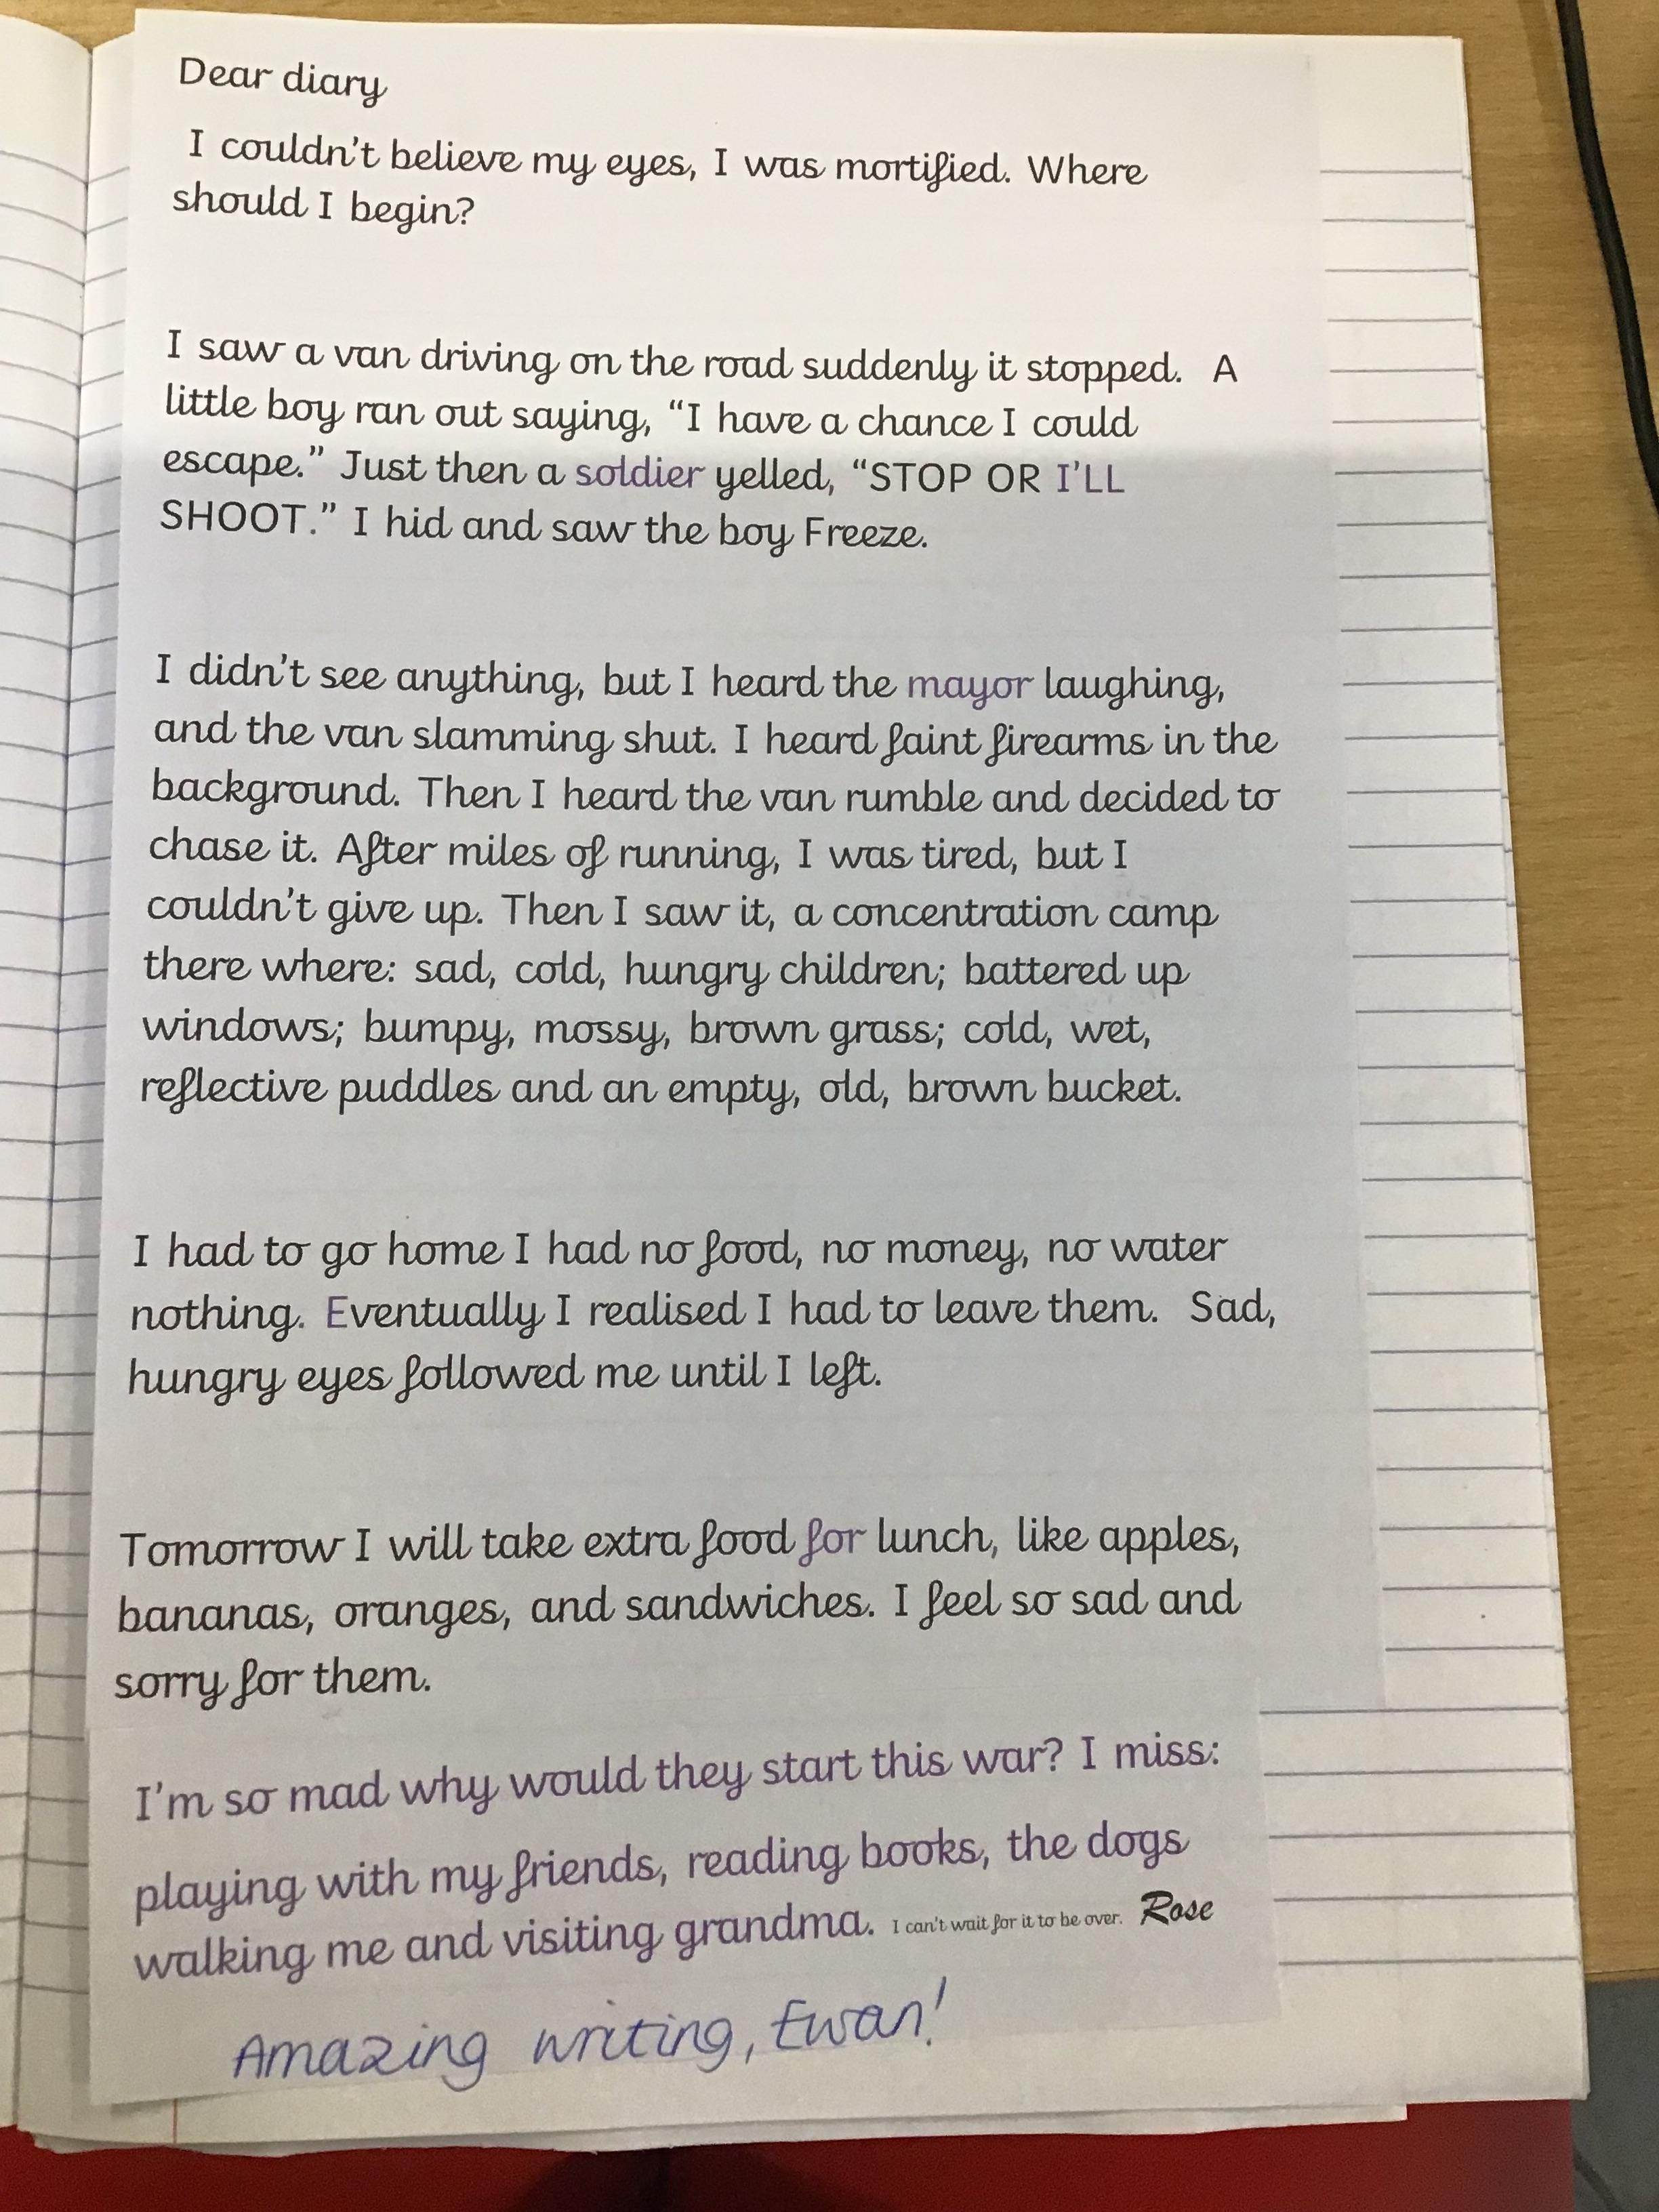 Dear diary
I couldn't believe my eyes, I was mortified. Where
should I begin?
I saw a van driving on the road suddenly it stopped. A
little boy ran out saying, “I have a chance I could
escape.” Just then a soldier yelled, “STOP OR I'LL
SHOOT.” I hid and saw the boy Freeze.
I didn't see anything, but I heard the mayor laughing,
and the van slamming shut. I heard faint firearms in the
background. Then I heard the van rumble and decided to
chase it. After miles of running, I was tired, but I
couldn't give up. Then I saw it, a concentration camp
there where: sad, cold, hungry children; battered up
windows; bumpy, mossy, brown grass; cold, wet,
reflective puddles and an empty, old, brown bucket.
I had to go home I had no food, no money, no water
nothing. Eventually I realised I had to leave them. Sad,
hungry eyes followed me until I left.
Tomorrow I will take extra food for lunch, like apples,
bananas, oranges, and sandwiches. I feel so sad and
sorry for them.
I'm so mad why would they start this war? I miss:
playing with my friends, reading books, the dogs
walking me and visiting grandma. I can't wait for it to be over. Rose
Amazing writing, Ewan!